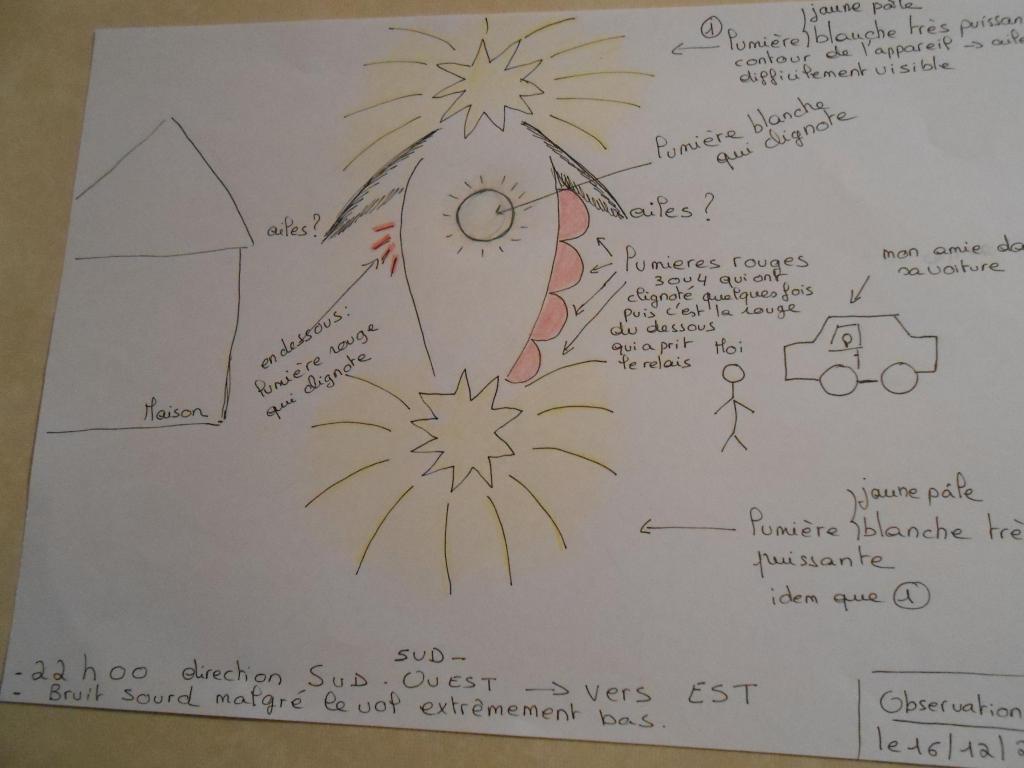 jaune pâle
① Lumière blanche très puissan
contour de l'appareil → aile
difficilement visible
Lumière blanche
qui clignote
ailes?
ailes?
mon amie da
sa voiture
Lumieres rouges
3 ou 4 qui ont
clignoté quelques fois
puis c'est la rouge
du dessous
qui a prit
le relais
Moi
en dessous:
Lumière rouge
qui clignote
Maison
jaune pâle
Lumière blanche trè
puissante
idem que ①
- 22h00 direction SUD. SUD-OUEST → vers EST
- Bruit sourd malgré le vol extrêmement bas.
Observation
le 16/12/2